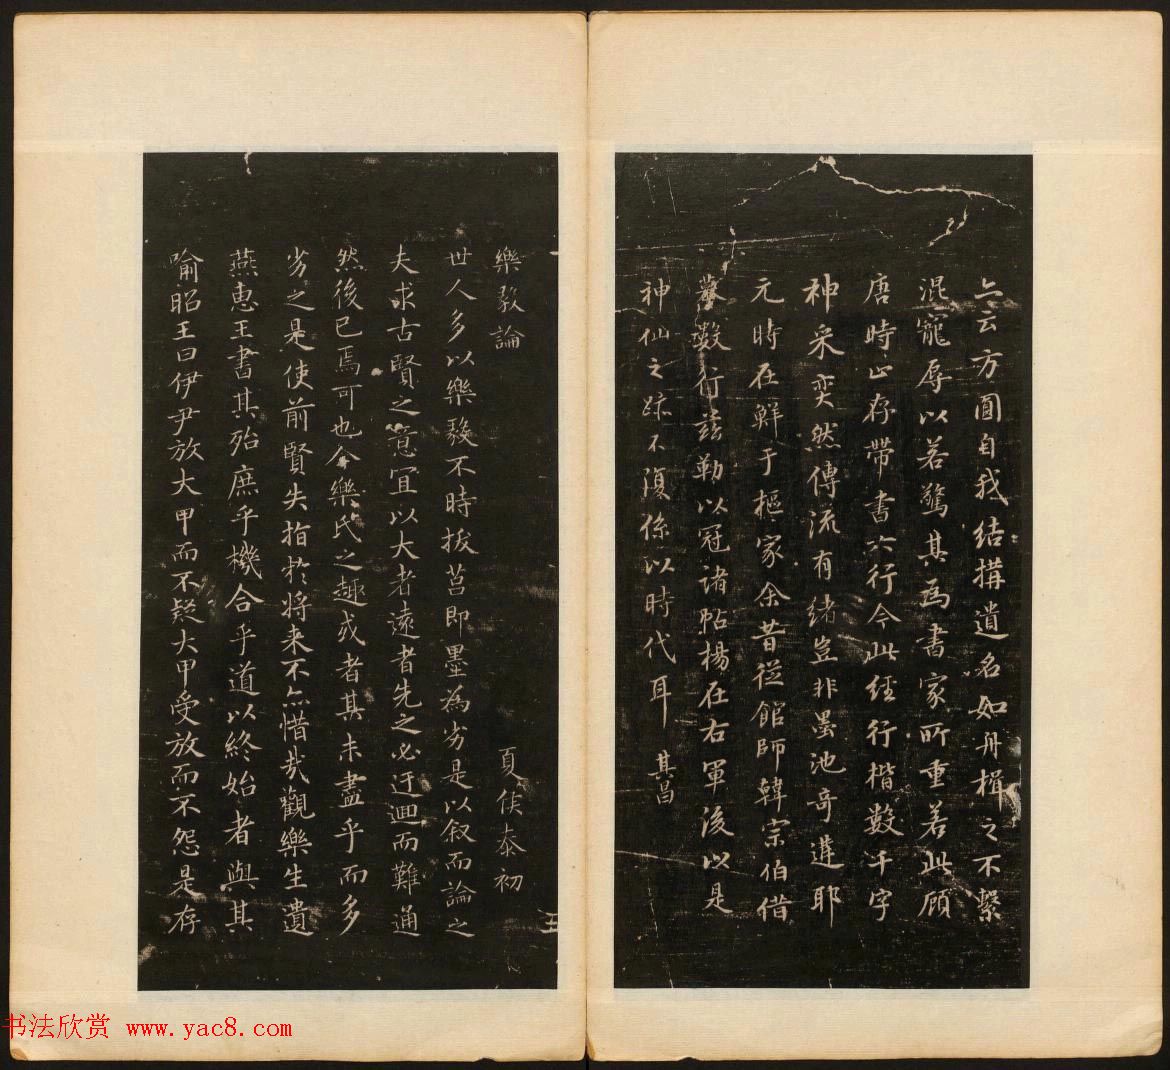 亦云方圓自我結構遺名如舟楫之不繫
混寵辱以若驚其為書家所重若此顧
唐時止存帶書六行今此經行楷數千字
神采奕然傳流有緒豈非墨池奇遘耶
元時在鮮于樞家余昔從館師韓宗伯借
摹數行茲勒以冠諸帖楊在右軍後以是
神仙之跡不復係以時代耳 其昌
樂毅論
夏侯泰初
五
世人多以樂毅不時拔莒即墨為劣是以叙而論之
夫求古賢之意宜以大者遠者先之必迂迴而難通
然後已焉可也今樂氏之趣或者其未盡乎而多
劣之是使前賢失指於將来不亦惜哉觀樂生遺
燕惠王書其殆庶乎機合乎道以終始者與其
喻昭王曰伊尹放大甲而不疑大甲受放而不怨是存
书法欣赏 www.yac8.com